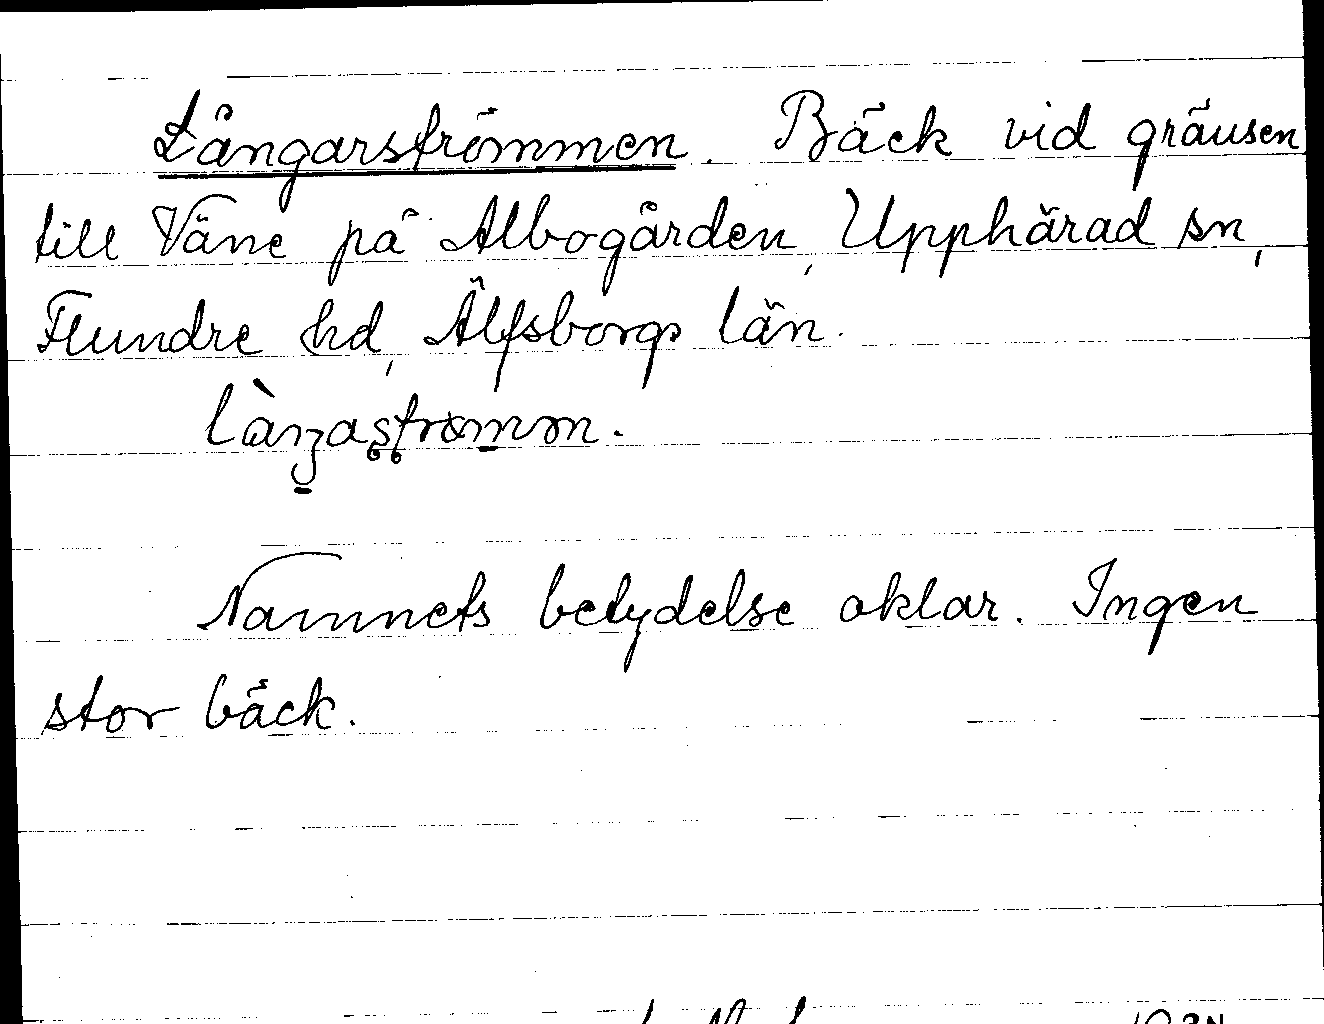 Långarströmmen. Bäck vid gränsen
till Väne på Albogården, Upphärad sn,
Flundre hd, Älfsborgs län.
Namnets betydelse oklar. Ingen
stor bäck.